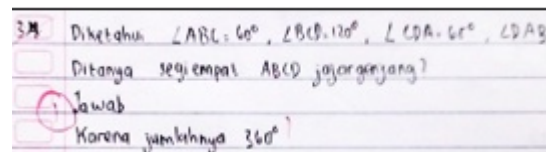 34 Diketahui ∠ABC = 60°, ∠BCD = 120°, ∠CDA = 60°, ∠DAB
Ditanya segiempat ABCD jajargenjang?
Jawab
Karena jumlahnya 360°